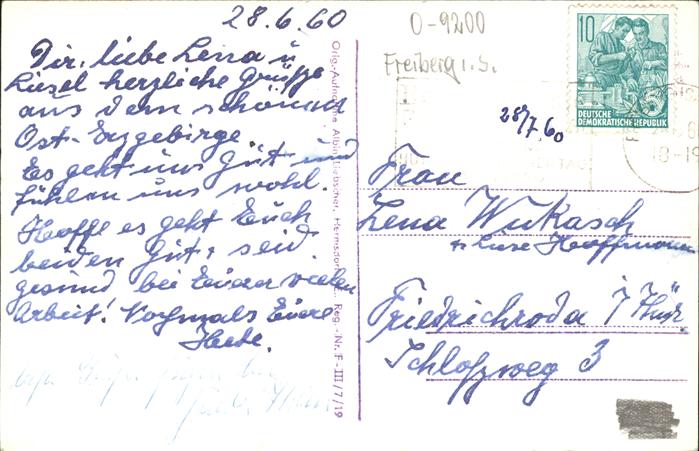 28.6.60
Dir, liebe Lena u
Liesel herzliche Grüße
aus dem schönen
Ost-Erzgebirge
Es geht uns gut und
fühlen uns wohl.
Hoffe es geht Euch
beiden gut, seid
gesund bei Eurer vielen
Arbeit! Nochmals Eure
Orig.-Aufnahme Albin Hermsdorf Reg.-Nr. F-III/7/19
0-9200
Freiberg i. S.
28/7.60
10
DEUTSCHE
DEMOKRATISCHE REPUBLIK
18-19
Frau
Lena Wukasch
Hoffmann
Friedrichroda i/Thür.
Schloßweg 3